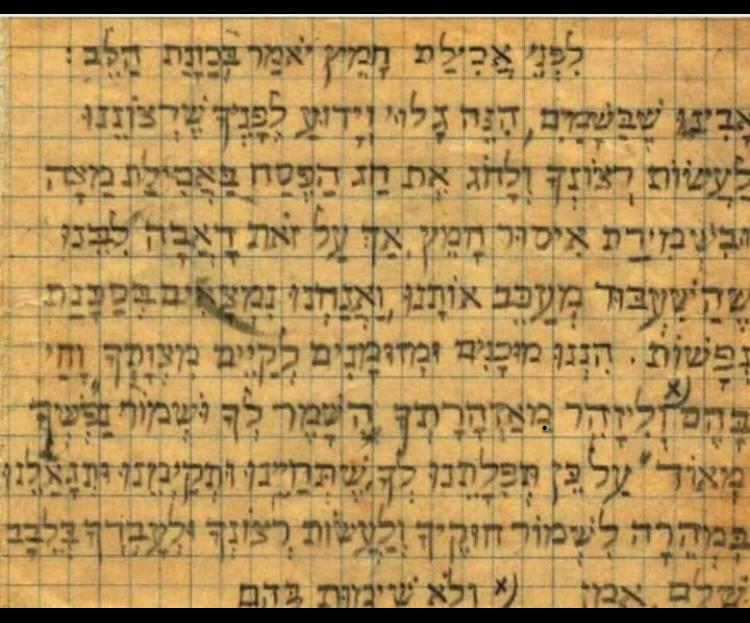 לִפְנֵי אֲכִילַת חָמֵץ יֹאמַר בְּכַוָּנַת הַלֵּב :
אָבִינוּ שֶׁבַּשָּׁמַיִם, הִנֵּה גָּלוּי וְיָדוּעַ לְפָנֶיךָ שֶׁרְצוֹנֵנוּ
לַעֲשׂוֹת רְצוֹנְךָ וְלָחֹג אֶת חַג הַפֶּסַח בַּאֲכִילַת מַצָּה
וּבִשְׁמִירַת אִיסוּר חָמֵץ, אַךְ עַל זֹאת דָּאֲבָה לִבֵּנוּ
שֶׁהַשִּׁעְבּוּד מְעַכֵּב אוֹתָנוּ, וַאֲנַחְנוּ נִמְצָאִים בְּסַכָּנַת
נְפָשׁוֹת. הִנְנוּ מוּכָנִים וּמְזוּמָּנִים לְקַיֵּים מִצְוָתְךָ "וָחַי
בָּהֶם" x) וְלִיזָּהֵר מֵאַזְהָרָתְךָ "הִשָּׁמֶר לְךָ וּשְׁמוֹר נַפְשְׁךָ
מְאוֹד" עַל כֵּן תְּפִלָּתֵנוּ לְךָ שֶׁתְּחַיֵּינוּ וּתְקַיְּמֵנוּ וְתִגְאָלֵנוּ
בִּמְהֵרָה לִשְׁמוֹר חוּקֶּיךָ וְלַעֲשׂוֹת רְצוֹנְךָ וּלְעָבְדְּךָ בְּלֵבָב
שָׁלֵם אמן x) וְלֹא שֶׁיָּמוּת בָּהֶם